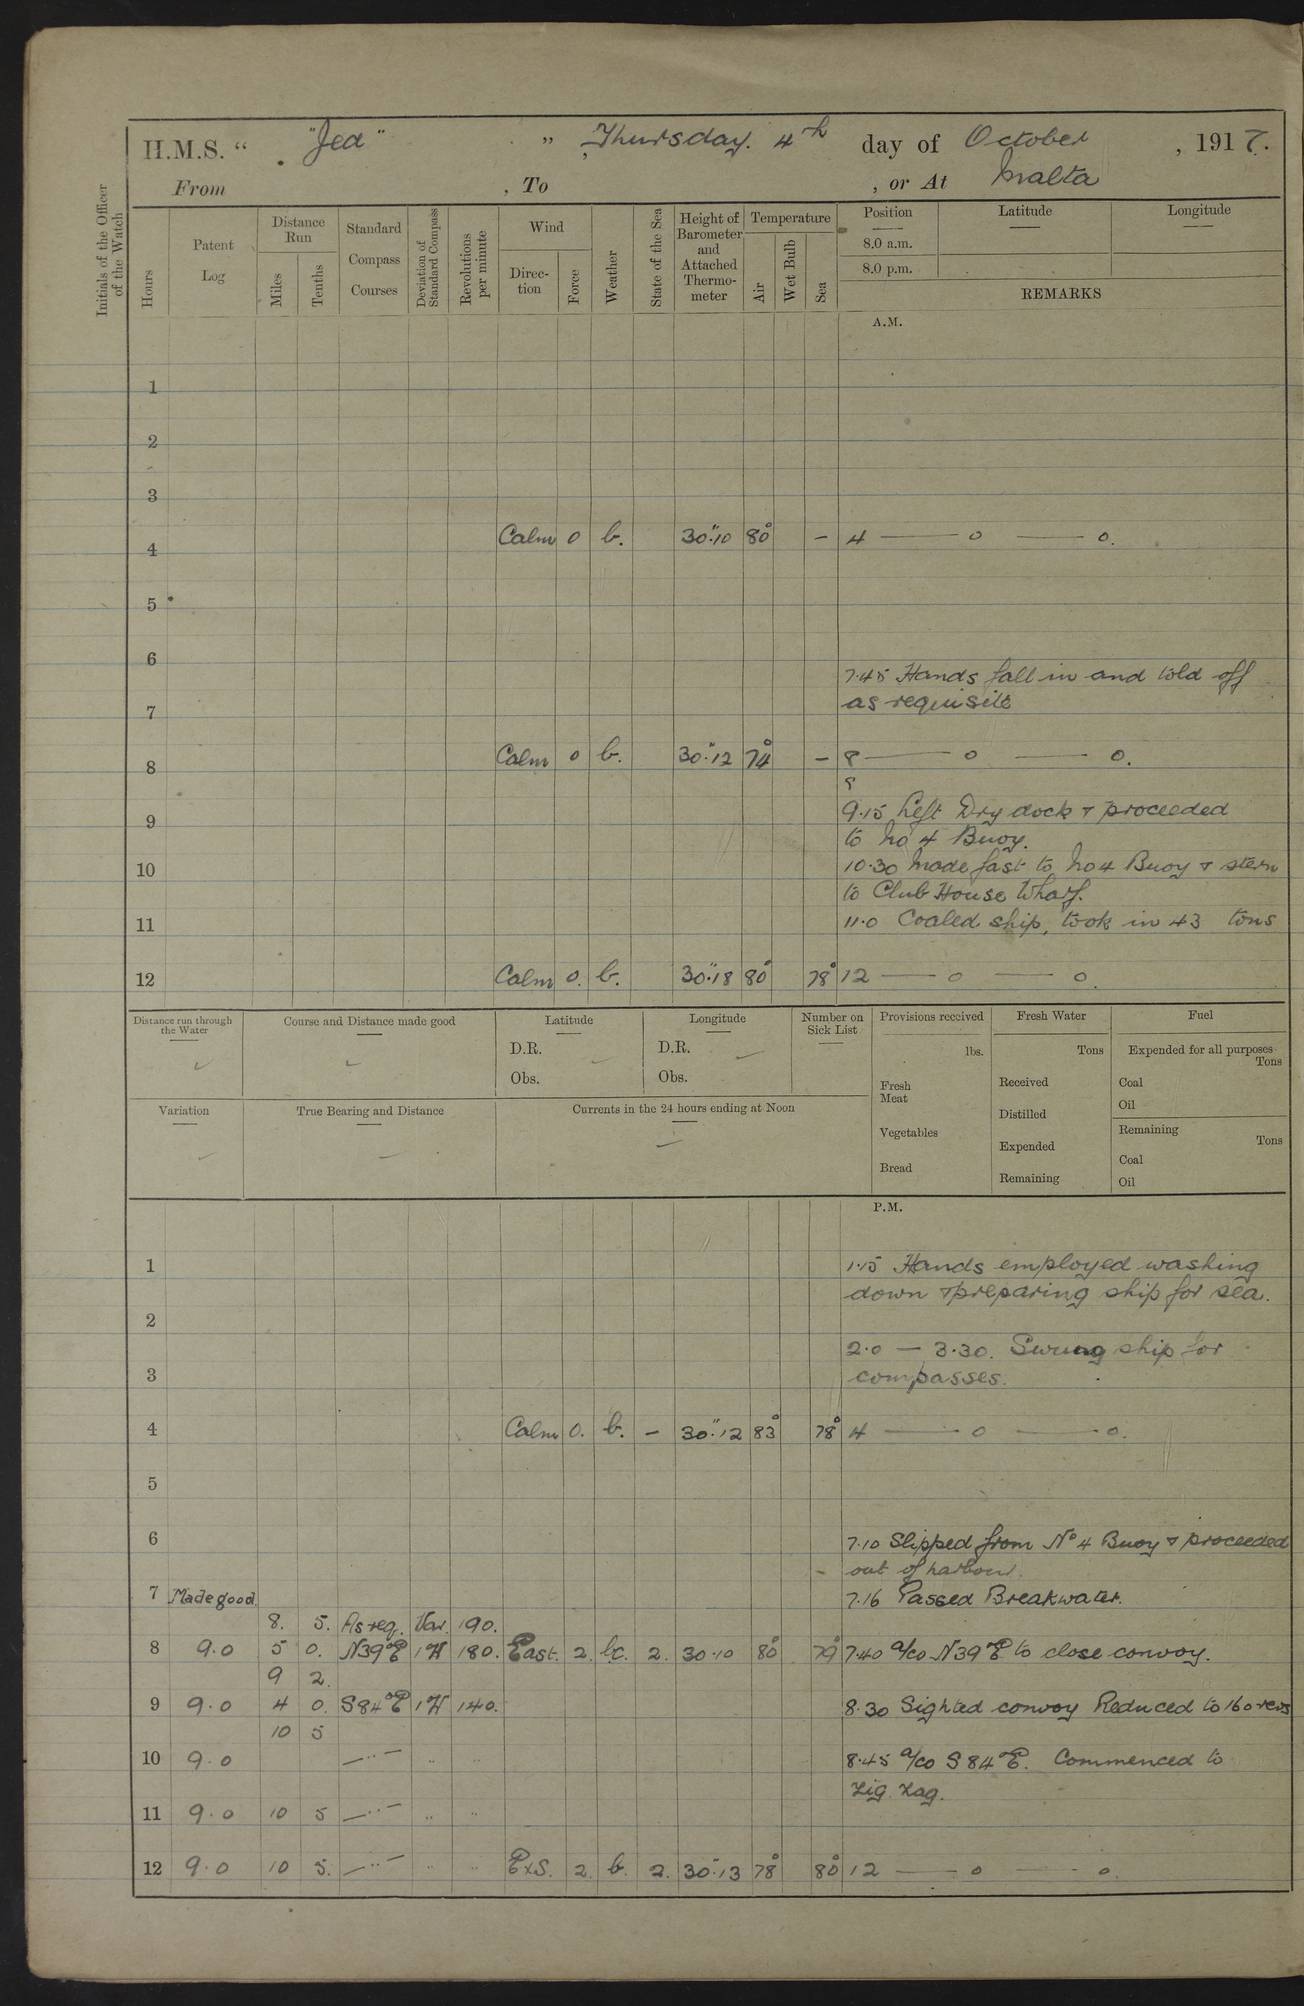 H.M.S. " "Jed" " , Thursday. 4th day of October , 1917.
From , To , or At Malta
Initials of the Officer of the Watch
Hours
Patent Log
Distance Run
Miles
Tenths
Standard Compass Courses
Deviation of Standard Compass
Revolutions per minute
Wind
Direc-tion
Force
Weather
State of the Sea
Height of Barometer and Attached Thermo-meter
Temperature
Air
Wet Bulb
Sea
Position Latitude Longitude
8.0 a.m.
8.0 p.m.
REMARKS
A.M.
1
2
3
4 Calm 0 b. 30".10 80° – 4 —— 0 —— 0.
5
6
7.45 Hands fall in and told off
7 as requisite
8 Calm 0 b. 30".12 74° – 8 —— 0 —— 0.
9
9.15 Left Dry dock & proceeded
to No 4 Buoy.
10 10.30 Made fast to No 4 Buoy & stern
to Club House Wharf.
11 11.0 Coaled ship, took in 43 tons
12 Calm 0. b. 30".18 80° 78° 12 —— 0 —— 0.
Distance run through the Water
Course and Distance made good
Latitude
D.R.
Obs.
Longitude
D.R.
Obs.
Number on Sick List
Provisions received
lbs.
Fresh Meat
Vegetables
Bread
Fresh Water
Tons
Received
Distilled
Expended
Remaining
Fuel
Expended for all purposes
Tons
Coal
Oil
Remaining
Tons
Coal
Oil
Variation
True Bearing and Distance
Currents in the 24 hours ending at Noon
P.M.
1 1.15 Hands employed washing
down & preparing ship for sea.
2
2.0 — 3.30. Swung ship for
3 compasses.
4 Calm 0. b. – 30".12 83° 78° 4 —— 0 —— 0.
5
6 7.10 Slipped from No 4 Buoy & proceeded
out of harbour.
7 Made good 7.16 Passed Breakwater.
8. 5. As req. Var. 190.
8 9.0 5 0. N39°E 1W 180. East. 2. bc. 2. 30.10 80° 79° 7.40 a/co N39°E to close convoy.
9 2.
9 9.0 4 0. S84°E 1W 140. 8.30 Sighted convoy Reduced to 160 revs
10 5
10 9.0 —..— .. .. 8.45 a/co S84°E. Commenced to
Zig Zag.
11 9.0 10 5 —..— .. ..
12 9.0 10 5. —..— .. .. ExS. 2. b. 2. 30".13 78° 80° 12 —— 0 —— 0.